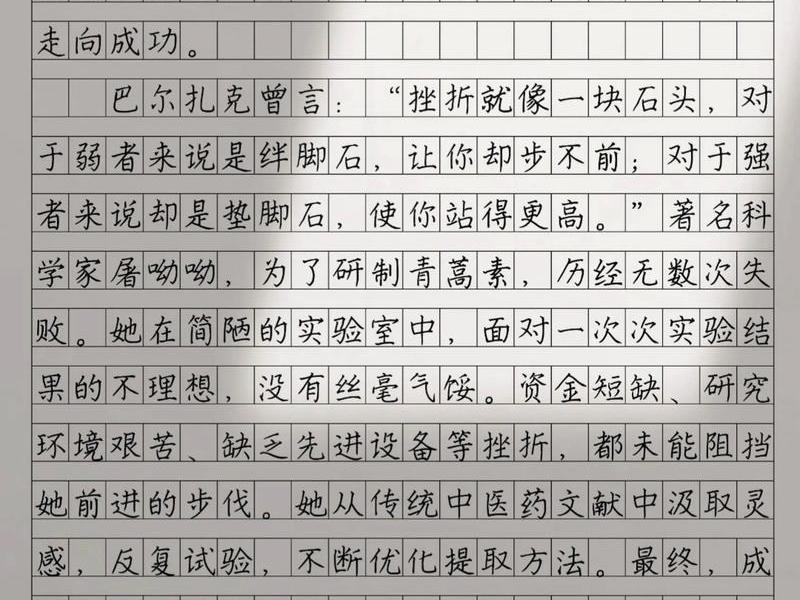 走向成功。
巴尔扎克曾言：“挫折就像一块石头，对
于弱者来说是绊脚石，让你却步不前；对于强
者来说却是垫脚石，使你站得更高。”著名科
学家屠呦呦，为了研制青蒿素，历经无数次失
败。她在简陋的实验室中，面对一次次实验结
果的不理想，没有丝毫气馁。资金短缺、研究
环境艰苦、缺乏先进设备等挫折，都未能阻挡
她前进的步伐。她从传统中医药文献中汲取灵
感，反复试验，不断优化提取方法。最终，成